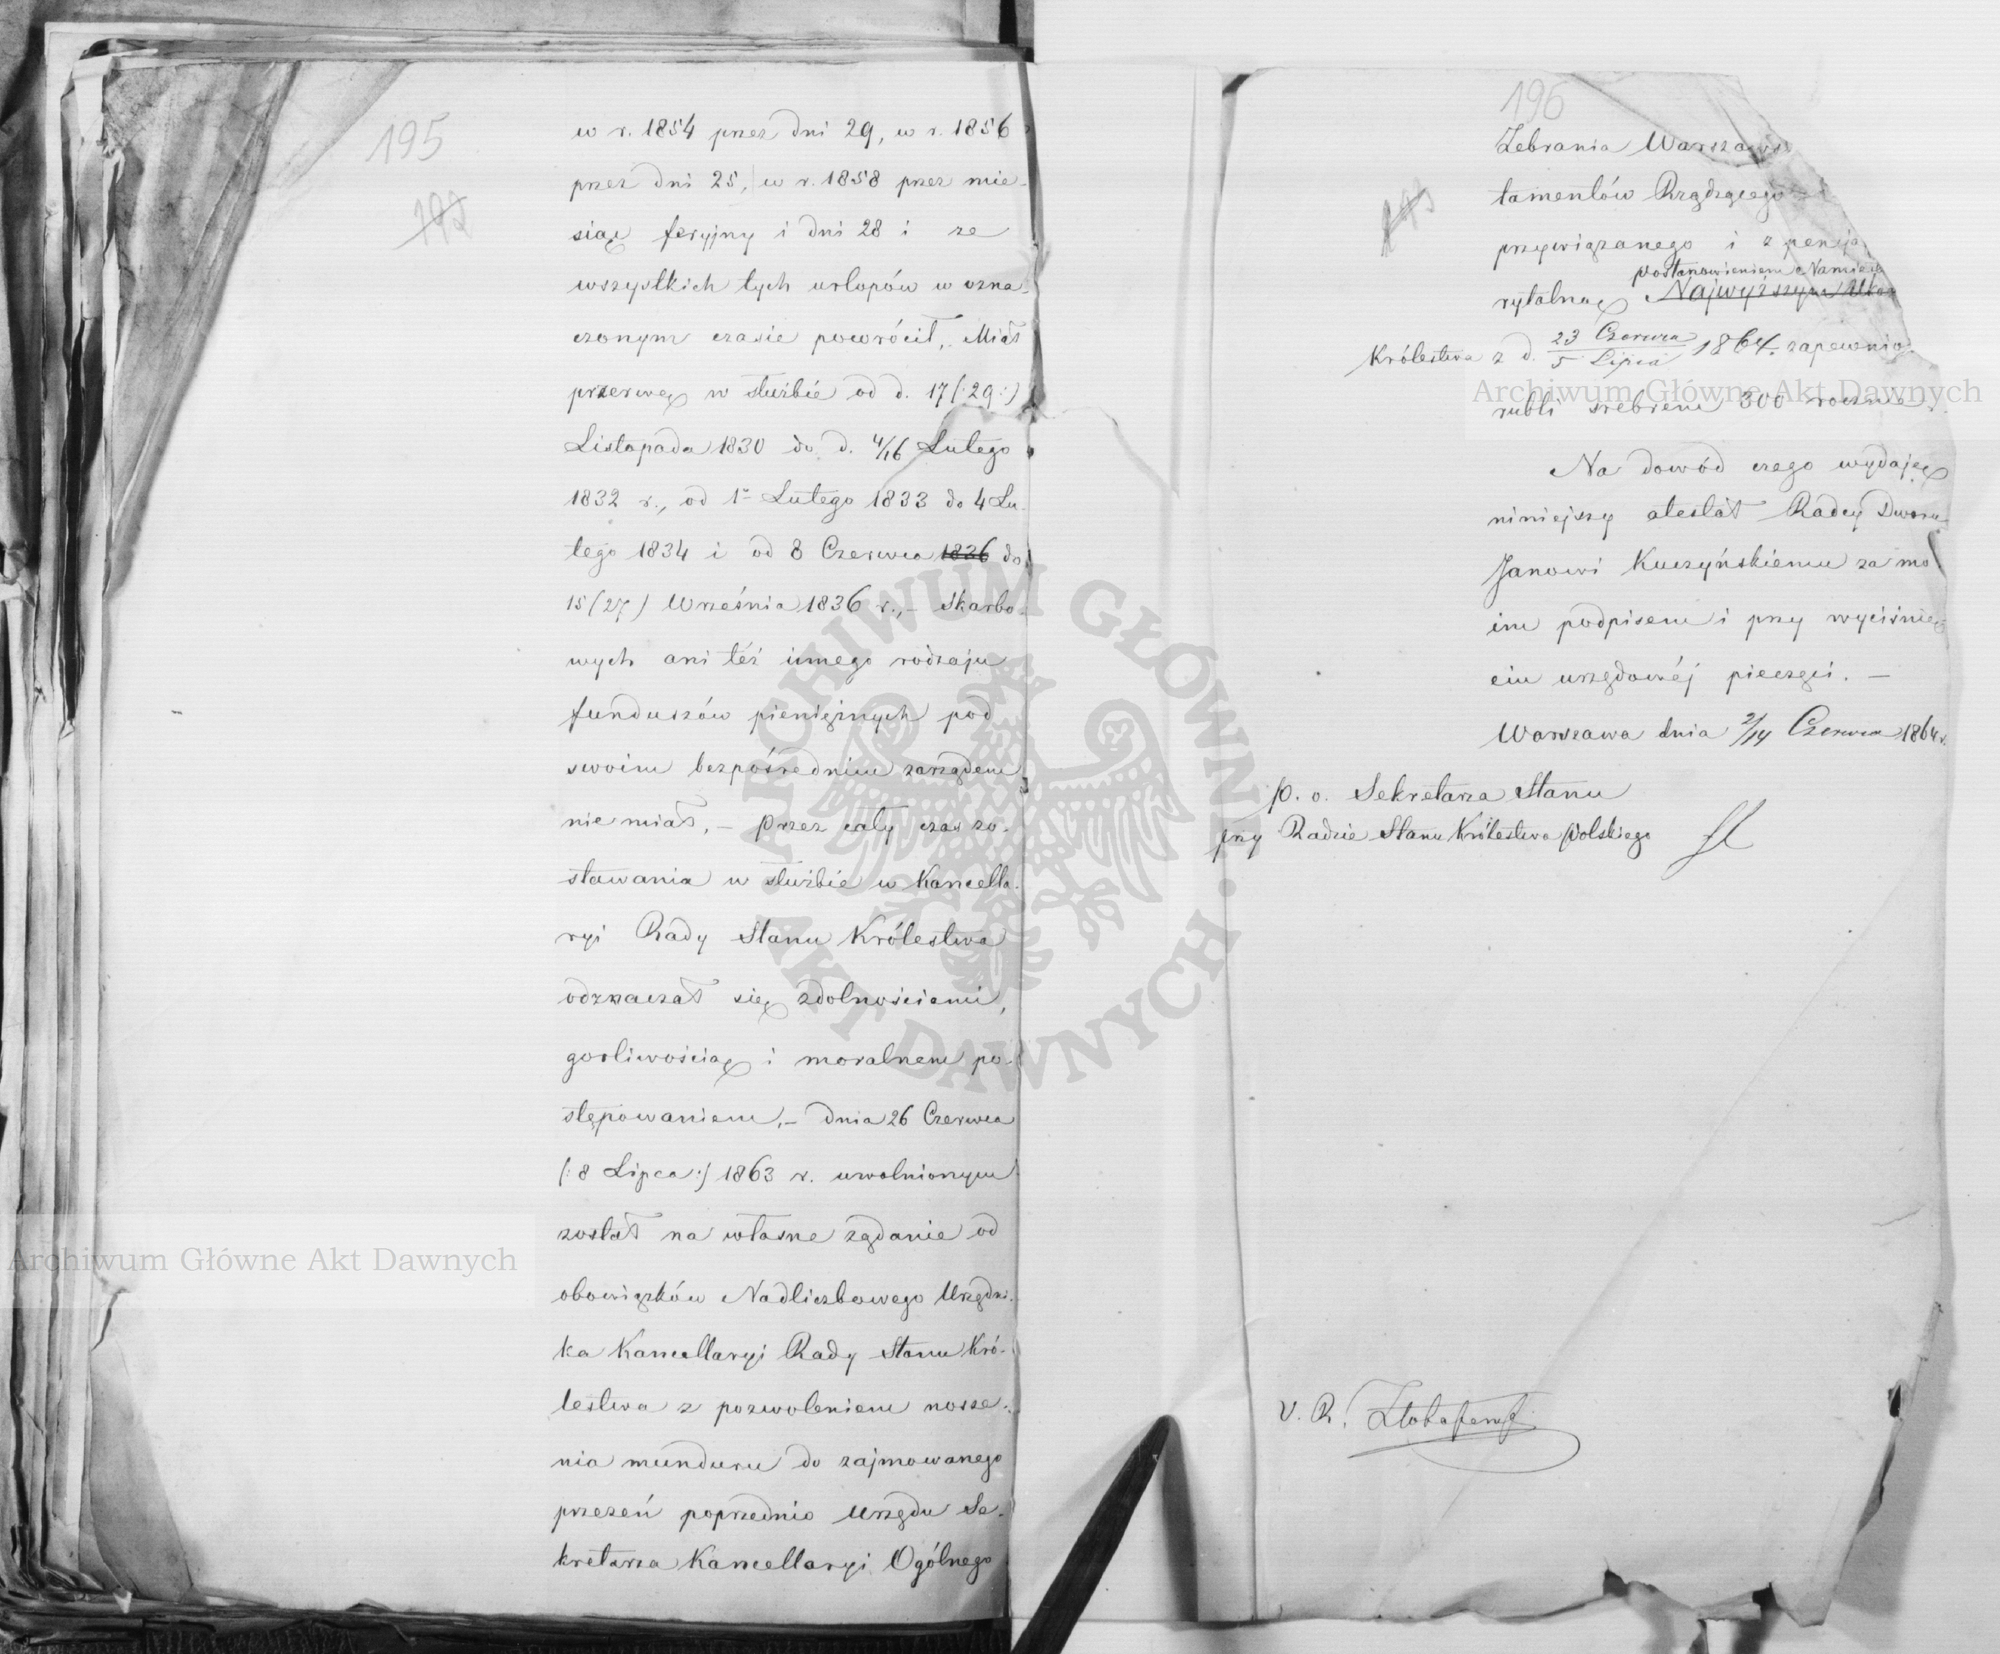 195
w r. 1854 przez dni 29, w r. 1856
przez dni 25, w r. 1858 przez mie-
siąc feryjny i dni 28 i ze
wszystkich tych urlopów w ozna-
czonym czasie powrócił, Miał
przerwę w służbie od d. 17 (:29:)
Listopada 1830 do d. 4/16 Lutego
1832 r., od 1 Lutego 1833 do 4 Lu-
tego 1834 i od 8 Czerwca 1836 do
15 (27) Września 1836 r., – Skarbo-
wych ani też innego rodzaju
funduszów pieniężnych pod
swoim bezpośrednim zarządem
nie miał, – Przez cały czas zo-
stawania w służbie w Kancella-
ryi Rady Stanu Królestwa
odznaczał się zdolnościami,
gorliwością i moralnem po-
stępowaniem, – dnia 26 Czerwca
(:8 Lipca:) 1863 r. uwolnionym
został na własne żądanie od
obowiązków Nadliczbowego Urzędni-
ka Kancellaryi Rady Stanu Kró-
lestwa z pozwoleniem nosze-
nia munduru do zajmowanego
przezeń poprzednio Urzędu Se-
kretarza Kancellaryi Ogólnego
196
Zebrania Warszaws
tamentów Rządzącego
przywiązanego i z pensją
postanowieniem Namies
rytalną Najwyższym Ukaz
Królestwa z d. 23 Czerwca / 5 Lipca 1864. zapewnio
rubli srebrem 300 rocznie
Na dowód czego wydaję
niniejszy atestat Radcy Dworu
Janowi Kuczyńskiemu za mo
im podpisem i przy wyciśnię
ciu urzędowéj pieczęci. –
Warszawa dnia 2/14 Czerwca 1864 r.
p. o. Sekretarza Stanu
przy Radzie Stanu Królestwa Polskiego
V. R.
Archiwum Główne Akt Dawnych
Archiwum Główne Akt Dawnych
ARCHIWUM GŁÓWNE AKT DAWNYCH